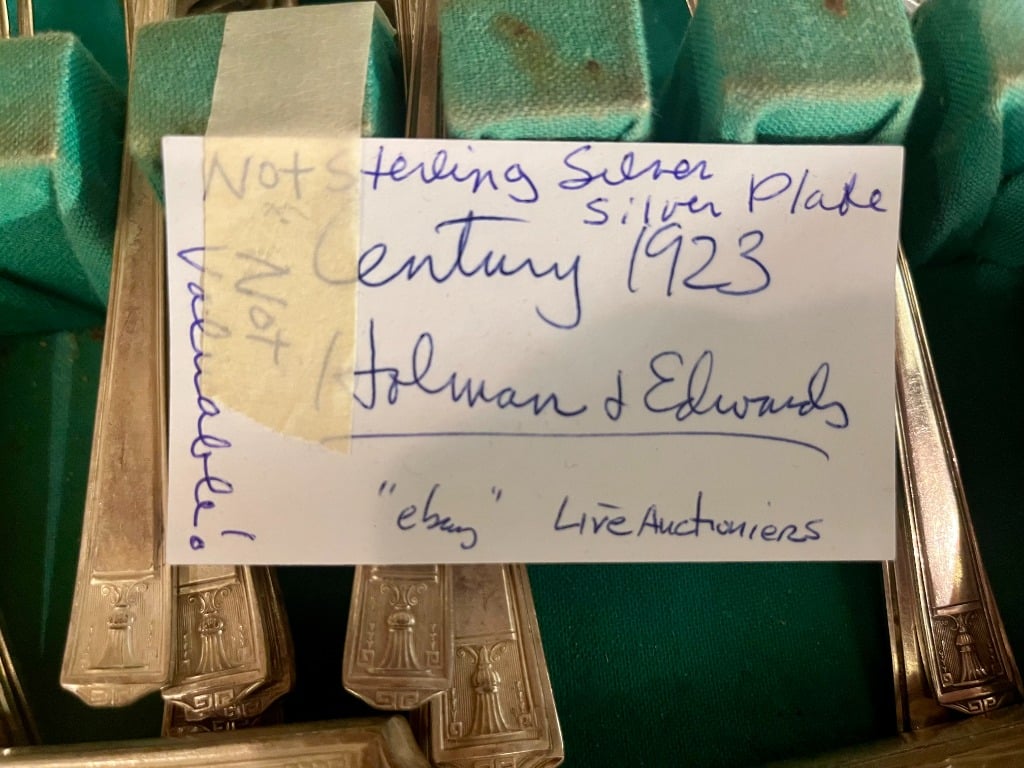 Not Sterling Silver
Silver Plate
Century 1923
Holman & Edwards
"ebay" LiveAuctioniers
Not
Valuable!